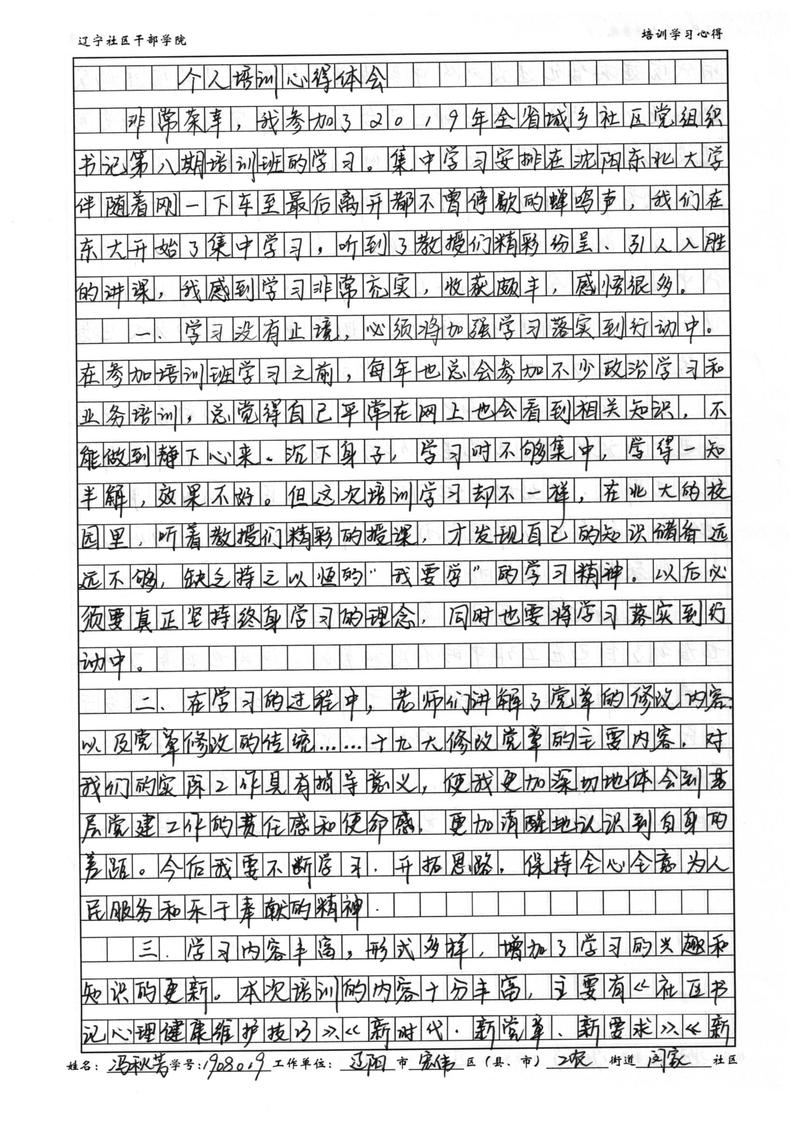 辽宁社区干部学院
培训学习心得
个人培训心得体会
非常荣幸，我参加了2019年全省城乡社区党组织
书记第八期培训班的学习。集中学习安排在沈阳东北大学
伴随着刚一下车至最后离开都不曾停歇的蝉鸣声，我们在
东大开始了集中学习，听到了教授们精彩纷呈、引人入胜
的讲课，我感到学习非常充实，收获颇丰，感悟很多。
一、学习没有止境，必须将加强学习落实到行动中。
在参加培训班学习之前，每年也总会参加不少政治学习和
业务培训，总觉得自己平常在网上也会看到相关知识，不
能做到静下心来、沉下身子，学习时不够集中，学得一知
半解，效果不好。但这次培训学习却不一样，在北大的校
园里，听着教授们精彩的授课，才发现自己的知识储备远
远不够，缺乏持之以恒的“我要学”的学习精神。以后必
须要真正坚持终身学习的理念，同时也要将学习落实到行
动中。
二、在学习的过程中，老师们讲解了党章的修改内容
以及党章修改的传统……十九大修改党章的主要内容，对
我们的实际工作具有指导意义，使我更加深切地体会到基
层党建工作的责任感和使命感，更加清醒地认识到自身的
差距。今后我要不断学习，开拓思路，保持全心全意为人
民服务和乐于奉献的精神.
三、学习内容丰富，形式多样，增加了学习的兴趣和
知识的更新。本次培训的内容十分丰富，主要有《社区书
记心理健康维护技巧》《新时代·新党章、新要求》《新
姓名：冯秋芳 学号：1908019 工作单位：辽阳 市 宏伟 区（县、市） 工农 街道 闫家 社区